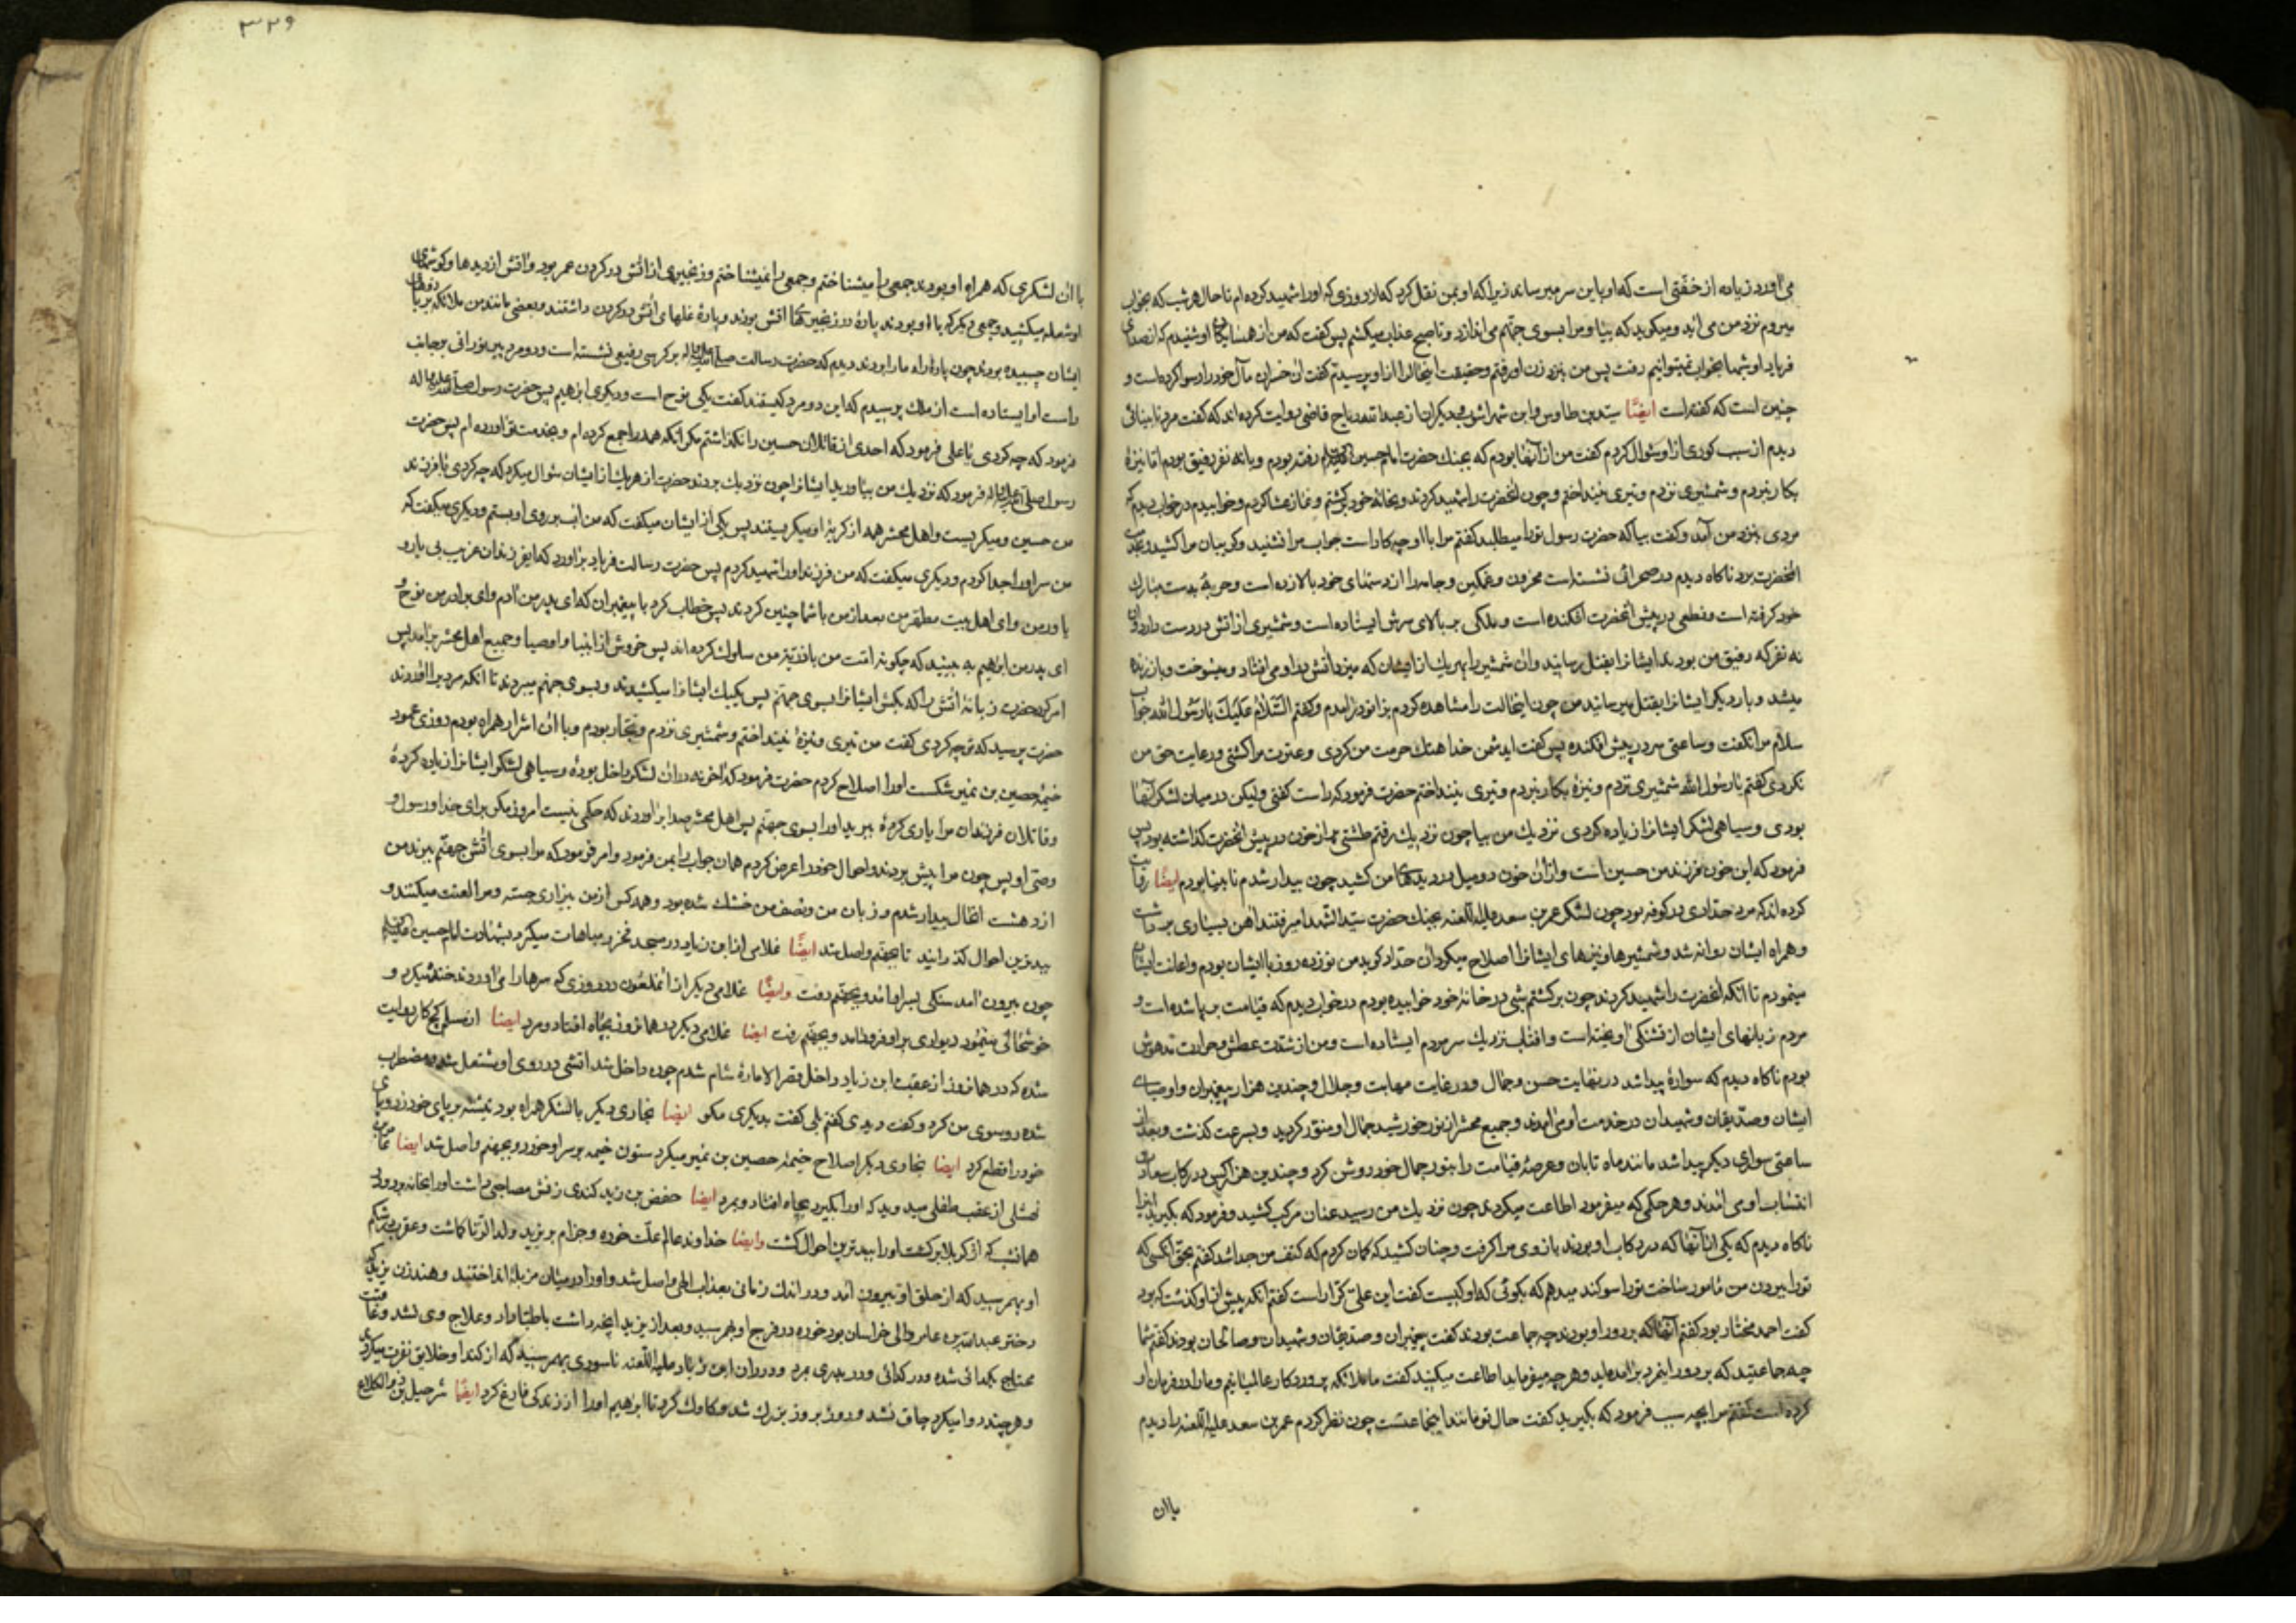 می آورد زیاده از خفتی است که او باین سر میرساند زیرا که او بمن نقل کرد که از روزی که اورا شهید کرده ام تا حال هر شب که بخواب
میروم نزد من می آید و میکوید که بیا و مرا بسوی جهنم می اندازد و تا صبح عذاب میکشم پس کفت که من از همسایکان او شنیدم که از صدای
فریاد او شبها بخواب نمیتوانیم رفت پس من بنزد زن او رفتم و حقیقت اینحال را از او پرسیدم کفت آن خسران مآل خود را رسوا کرده است و
چنین است که کفته است ایضًا سید بن طاوس و ابن شهراشوب و دیکران از عبدالله بن رباح قاضی روایت کرده اند که کفت مرد نابینائی
دیدم از سبب کوری از او سؤال کردم کفت من از آنها بودم که بجنك حضرت امام حسین علیه السلام رفته بودم و با نه نفر رفیق بودم اما نیزهٔ
بکار نبردم و شمشیری نزدم و تیری نینداختم و چون آنحضرت را شهید کردند و بخانهٔ خود برکشتم و نماز عشا کردم و خوابیدم در خواب دیدم که
مردی بنزد من آمد و کفت بیا که حضرت رسول تورا میطلبد کفتم مرا با او چه کار است جواب مرا نشنید و کریبان مرا کشید و بخدمت
آنحضرت برد ناکاه دیدم در صحرائی نشسته است محزون و غمکین و جامه را از دستهای خود بالا زده است و حربهٔ بدست مبارك
خود کرفته است و نطعی در پیش آنحضرت افکنده است و ملکی بر بالای سرش ایستاده است و شمشیری از آتش در دست دارد و آن
نه نفر که رفیق من بودند ایشانرا بقتل میرسانید و آن شمشیر را بهر یك از ایشان که میزد آتش در او می افتاد و میسوخت و باز زنده
میشد و بار دیکر ایشانرا بقتل میرسانید من چون اینحالت را مشاهده کردم بزانو درآمدم و کفتم السَّلامُ عَلَیْكَ یا رَسُولَ الله جواب
سلام مرا نکفت و ساعتی سر در پیش افکنده پس کفت ایدشمن خدا هتك حرمت من کردی و عترت مرا کشتی و رعایت حق من
نکردی کفتم یا رسول الله شمشیری نزدم و نیزهٔ بکار نبردم و تیری نینداختم حضرت فرمود که راست کفتی ولیکن در میان لشکر آنها
بودی و سیاهی لشکر ایشانرا زیاده کردی نزدیك من بیا چون نزدیك رفتم طشتی پر از خون در پیش آنحضرت کذاشته بود پس
فرمود که این خون فرزند من حسین است و از آن خون دو میل در دیدهای من کشید چون بیدار شدم نابینا بودم ایضًا روایت
کرده اند که مرد حدّادی در کوفه بود چون لشکر عمر بن سعد علیه اللعنه بجنك حضرت سید الشهدا میرفتند آهن بسیاری برداشت
و همراه ایشان روانه شد و شمشیرها و نیزهای ایشانرا اصلاح میکرد آن حدّاد کوید من نوزده روز با ایشان بودم و اعانت ایشان
مینمودم تا آنکه آنحضرت را شهید کردند چون برکشتم شبی در خانهٔ خود خوابیده بودم در خواب دیدم که قیامت برپا شده است و
مردم زبانهای ایشان از تشنکی آویخته است و آفتاب نزدیك سر مردم ایستاده است و من از شدّت عطش و حرارت مدهوش
بودم ناکاه دیدم که سوارهٔ پیدا شد در نهایت حسن و جمال و در غایت مهابت و جلال و چندین هزار پیغمبران و اوصیای
ایشان و صدّیقان و شهیدان در خدمت او می آمدند و جمیع محشر از نور خورشید جمال او منوّر کردید و بسرعت کذشت و بعد از
ساعتی سواری دیکر پیدا شد مانند ماه تابان و عرصهٔ قیامت را بنور جمال خود روشن کرد و چندین هزار کس در رکاب سعادت
انتساب او می آمدند و هر حکمی که میفرمود اطاعت میکردند چون نزدیك من رسید عنان مرکب کشید و فرمود که بکیرید اینرا
ناکاه دیدم که یکی از آنها که در رکاب او بودند بازوی مرا کرفت و چنان کشید که کمان کردم که کتف من جدا شد کفتم بحق آنکسی که
تورا ببردن من مأمور ساخت تورا سوکند میدهم که بکوئی که او کیست کفت این علی کرّار است کفتم آنکه پیش از او کذشت که بود
کفت احمد مختار بود کفتم آنها که بر دور او بودند چه جماعت بودند کفت پیغمبران و صدیقان و شهیدان و صالحان بودند کفتم شما
چه جماعتید که بر دور اینمرد برآمده اید و هر چه میفرماید اطاعت میکنید کفت ما ملائکه پروردکار عالمیانیم و مارا در فرمان او
کرده است کفتم مرا بچه سبب فرمود که بکیرید کفت حال تو مانند اینجماعتست چون نظر کردم عمر بن سعد علیه اللعنه را دیدم
با ان
٣٣٩
با آن لشکری که همراه او بودند جمعی را میشناختم و جمعی را نمیشناختم و زنجیری از آتش در کردن عمر بود و آتش از دیدها و کوشهای
او شعله میکشید و جمعی دیکر که با او بودند پارهٔ در زنجیرهای آتش بودند و پارهٔ غلهای آتش در کردن داشتند و بعضی مانند من ملائکه بر بازوهای
ایشان چسبیده بودند چون پارهٔ راه مارا بردند دیدم که حضرت رسالت صلی الله علیه و آله بر کرسی رفیعی نشسته است و دو مرد پیر نورانی بر جانب
راست او ایستاده است از ملك پرسیدم که این دو مرد کیستند کفت یکی نوح است و دیکری ابراهیم پس حضرت رسول صلی الله علیه و آله
فرمود که چه کردی یا علی فرمود که احدی از قاتلان حسین را نکذاشتم مکر آنکه همه را جمع کرده ام و بخدمت تو آورده ام پس حضرت
رسول صلی الله علیه و آله فرمود که نزدیك من بیاورید ایشانرا چون نزدیك بردند حضرت از هر یك از ایشان سؤال میکرد که چه کردی با فرزند
من حسین و میکریست و اهل محشر همه از کریهٔ او میکریستند پس یکی از ایشان میکفت که من آب بر روی او بستم و دیکری میکفت که
من سر اورا جدا کردم و دیکری میکفت که من فرزند اورا شهید کردم پس حضرت رسالت فریاد برآورد که ایفرزندان غریب بی یار و
یاور من و ای اهل بیت مطهر من بعد از من با شما چنین کردند پس خطاب کرد با پیغمبران که ای پدر من آدم و ای برادر من نوح و
ای پدر من ابراهیم به بینید که چکونه امّت من با ذرّیهٔ من سلوك کرده اند پس خروش از انبیا و اوصیا و جمیع اهل محشر برآمد پس
امر کرد حضرت زبانهٔ آتش را که بکش ایشانرا بسوی جهنم پس یکیك ایشانرا میکشیدند و بسوی جهنم میبردند تا آنکه مردیرا آوردند
حضرت پرسید که تو چه کردی کفت من تیری و نیزهٔ نینداختم و شمشیری نزدم و نجّار بودم و با آن اشرار همراه بودم روزی عمود
خیمهٔ حصین بن نمیر شکست اورا اصلاح کردم حضرت فرمود که آخر نه در آن لشکر داخل بودهٔ و سیاهی لشکر ایشانرا زیاده کردهٔ
و قاتلان فرزندان مرا یاری کردهٔ ببرید اورا بسوی جهنم پس اهل محشر صدا برآوردند که حکمی نیست امروز مکر برای خدا و رسول و
وصیّ او پس چون مرا پیش بردند و احوال خود را عرض کردم همان جواب را بمن فرمود و امر فرمود که مرا بسوی آتش جهنم ببرند من
از دهشت آنحال بیدار شدم و زبان من و نصف من خشك شده بود و همه کس از من بیزاری جسته و مرا لعنت میکنند و
ببدترین احوال کذرانید تا بجهنم واصل شد ایضًا غلامی از ابن زیاد در مسجد فخر و مباهات میکرد بشهادت امام حسین علیه السلام
چون بیرون آمد سنکی بسر او آمد و بجهنم رفت و ایضًا غلامی دیکر از آنملعون در روزی که سرها را می آوردند خنده میکرد و
خوشحالی مینمود دیواری بر او فرود آمد و بجهنم رفت ایضا غلامی دیکر در همانروز بچاه افتاد و مرد ایضا از مسلم کچ کار روایت
شده که در همانروز از عقب ابن زیاد داخل قصر الامارهٔ شام شدم چون داخل شد آتشی در روی او مشتعل شد و مضطرب
شده رو بسوی من کرد و کفت دیدی کفتم بلی کفت بدیکری مکو ایضا نجّاری دیکر با لشکر همراه بود تیشه بر پای خود زد و پای
خود را قطع کرد ایضا نجاری دیکر اصلاح خیمهٔ حصین بن نمیر میکرد ستون خیمه بر سر او خورد و بجهنم واصل شد ایضا
از عقب طفلی میدوید که اورا بکیرد بچاه افتاد و بمرد ایضا حفص بن زید کندی زنش مصاحبی داشت اورا بخانه برد و در
همانشب که از کربلا برکشت اورا ببدترین احوال کشت و ایضا خداوند عالم علّت خوره و جزام بر یزید ولد الزنا کماشت و عقربی در شکم
او بهم رسید که از حلق او بیرون آمد و در اندك زمانی بعذاب الهی واصل شد و اورا در میان مزبلهٔ انداختند و هند زن یزید که
دختر عبدالله بن عامر والی خراسان بود خوره در فرج او بهم رسید و بعد از یزید آنچه داشت باطبا داد و علاج وی نشد و عاقبت
محتاج بکدائی شده و در کدائی و دربدری مرد و در ران ابن زیاد علیه اللعنه ناسوری بهم رسید که از کند او خلایق نفرت میکردی
و هر چند دوا میکرد چاق نشد و روز بروز بزرك شد و کاوك کرد تا ابراهیم اورا از زندکی فارغ کرد ایضًا شرحبیل بن ذی الکلاع